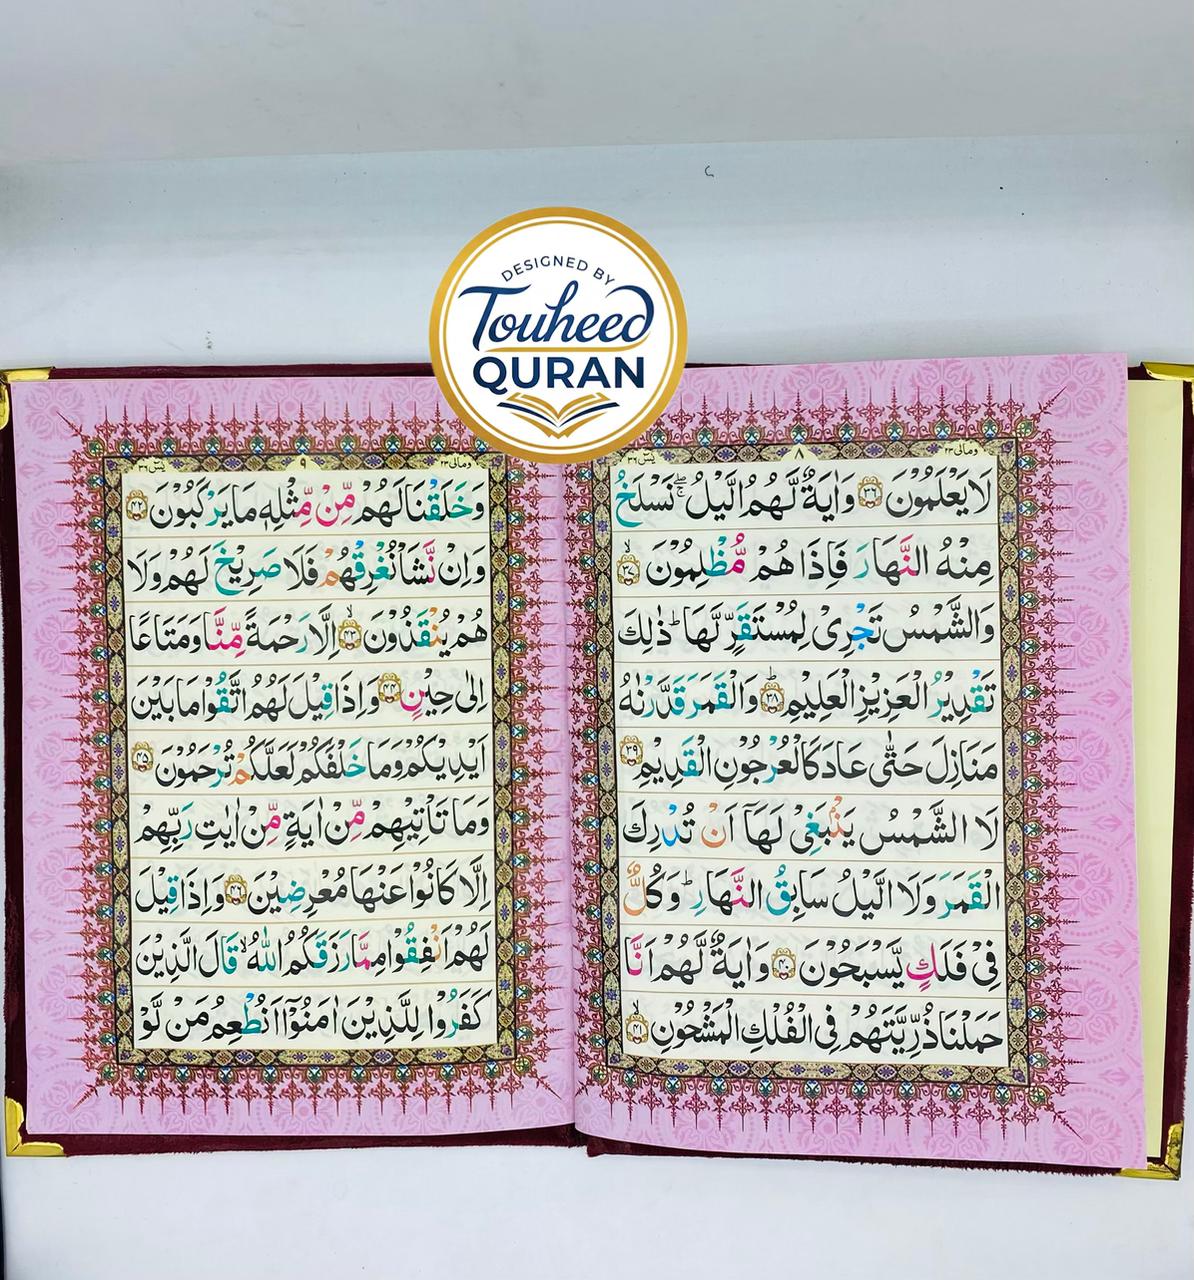 DESIGNED BY
Touheed
QURAN
ومالی ٢٣ ٨ یٰسٓ ٣٦
لَا يَعْلَمُوْنَ ﴿٣٦﴾ وَاٰيَةٌ لَّهُمُ الَّيْلُ ۖۚ نَسْلَخُ
مِنْهُ النَّهَارَ فَاِذَا هُمْ مُّظْلِمُوْنَ ۙ﴿٣٧﴾
وَالشَّمْسُ تَجْرِیْ لِمُسْتَقَرٍّ لَّهَا ؕ ذٰلِكَ
تَقْدِيْرُ الْعَزِيْزِ الْعَلِيْمِ ؕ﴿٣٨﴾ وَالْقَمَرَ قَدَّرْنٰهُ
مَنَازِلَ حَتّٰی عَادَ كَالْعُرْجُوْنِ الْقَدِيْمِ ﴿٣٩﴾
لَا الشَّمْسُ يَنْۢبَغِیْ لَهَاۤ اَنْ تُدْرِكَ
الْقَمَرَ وَلَا الَّيْلُ سَابِقُ النَّهَارِ ؕ وَكُلٌّ
فِیْ فَلَكٍ يَّسْبَحُوْنَ ﴿٤٠﴾ وَاٰيَةٌ لَّهُمْ اَنَّا
حَمَلْنَا ذُرِّيَّتَهُمْ فِی الْفُلْكِ الْمَشْحُوْنِ ۙ﴿٤١﴾
ومالی ٢٣ ٩ یٰسٓ ٣٦
وَخَلَقْنَا لَهُمْ مِّنْ مِّثْلِهٖ مَا يَرْكَبُوْنَ ﴿٤٢﴾
وَاِنْ نَّشَاْ نُغْرِقْهُمْ فَلَا صَرِيْخَ لَهُمْ وَلَا
هُمْ يُنْقَذُوْنَ ۙ﴿٤٣﴾ اِلَّا رَحْمَةً مِّنَّا وَمَتَاعًا
اِلٰی حِيْنٍ ﴿٤٤﴾ وَاِذَا قِيْلَ لَهُمُ اتَّقُوْا مَا بَيْنَ
اَيْدِيْكُمْ وَمَا خَلْفَكُمْ لَعَلَّكُمْ تُرْحَمُوْنَ ﴿٤٥﴾
وَمَا تَاْتِيْهِمْ مِّنْ اٰيَةٍ مِّنْ اٰيٰتِ رَبِّهِمْ
اِلَّا كَانُوْا عَنْهَا مُعْرِضِيْنَ ﴿٤٦﴾ وَاِذَا قِيْلَ
لَهُمْ اَنْفِقُوْا مِمَّا رَزَقَكُمُ اللّٰهُ ۙ قَالَ الَّذِيْنَ
كَفَرُوْا لِلَّذِيْنَ اٰمَنُوْۤا اَنُطْعِمُ مَنْ لَّوْ